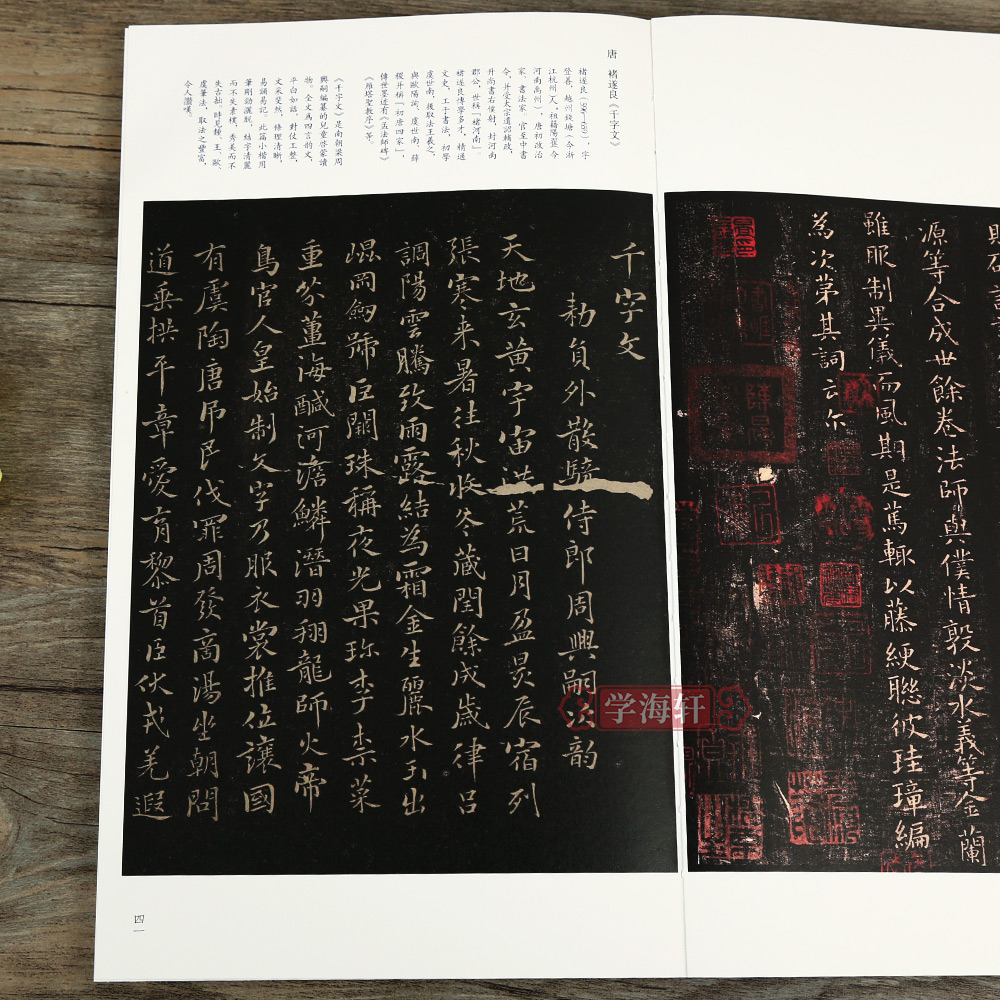 源等合成世餘卷法師與僕情敦淡水義等金蘭
雖服制異儀而風期是篤輒以藤綆聯彼珪璋編
為次第其詞云尓
唐 褚遂良《千字文》
褚遂良（596-659），字
登善，越州錢塘（今浙
江杭州）人，祖籍陽翟（今
河南禹州），唐初政治
家、書法家。官至中書
令，并受太宗遺詔輔政，
升尚書右僕射，封河南
郡公，世稱「褚河南」。
褚遂良博學多才，精通
文史，工于書法，初學
虞世南，後取法王羲之，
與歐陽詢、虞世南、薛
稷并稱「初唐四家」，
傳世墨迹有《孟法師碑》
《雁塔聖教序》等。
《千字文》是南朝梁周
興嗣編纂的兒童啓蒙讀
物。全文爲四言韵文，
平白如話，對仗工整，
文采斐然，條理清晰，
易誦易記。此篇小楷用
筆剛勁灑脱，結字清麗
而不失素樸，秀美而不
失古拙。時見鍾、王、歐、
虞筆法，取法之豐富，
令人讚嘆。
千字文
勑負外散騎侍郎周興嗣次韵
天地玄黃宇宙洪荒日月盈昃辰宿列
張寒来暑往秋收冬藏閏餘成歲律呂
調陽雲騰致雨露結為霜金生麗水玉出
崐岡劒號巨闕珠稱夜光果珍李柰菜
重芥薑海醎河淡鱗潛羽翔龍師火帝
鳥官人皇始制文字乃服衣裳推位讓國
有虞陶唐吊民伐罪周發商湯坐朝問
道垂拱平章愛育黎首臣伏戎羌遐
学海轩
四一